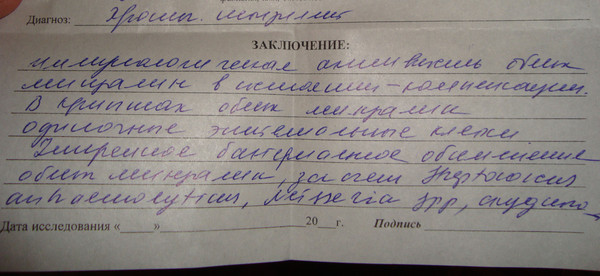 Диагноз: Хронич. тонзиллит
ЗАКЛЮЧЕНИЕ:
активность обеих
миндалин в состоянии компенсации.
В криптах обеих миндалин
одиночные эпителиальные клетки
Умеренное бактериальное обсеменение
обеих миндалин, за счет Streptococcus
anhaemolyticus, Neisseria spp,
Дата исследования «____»____________20__г. Подпись